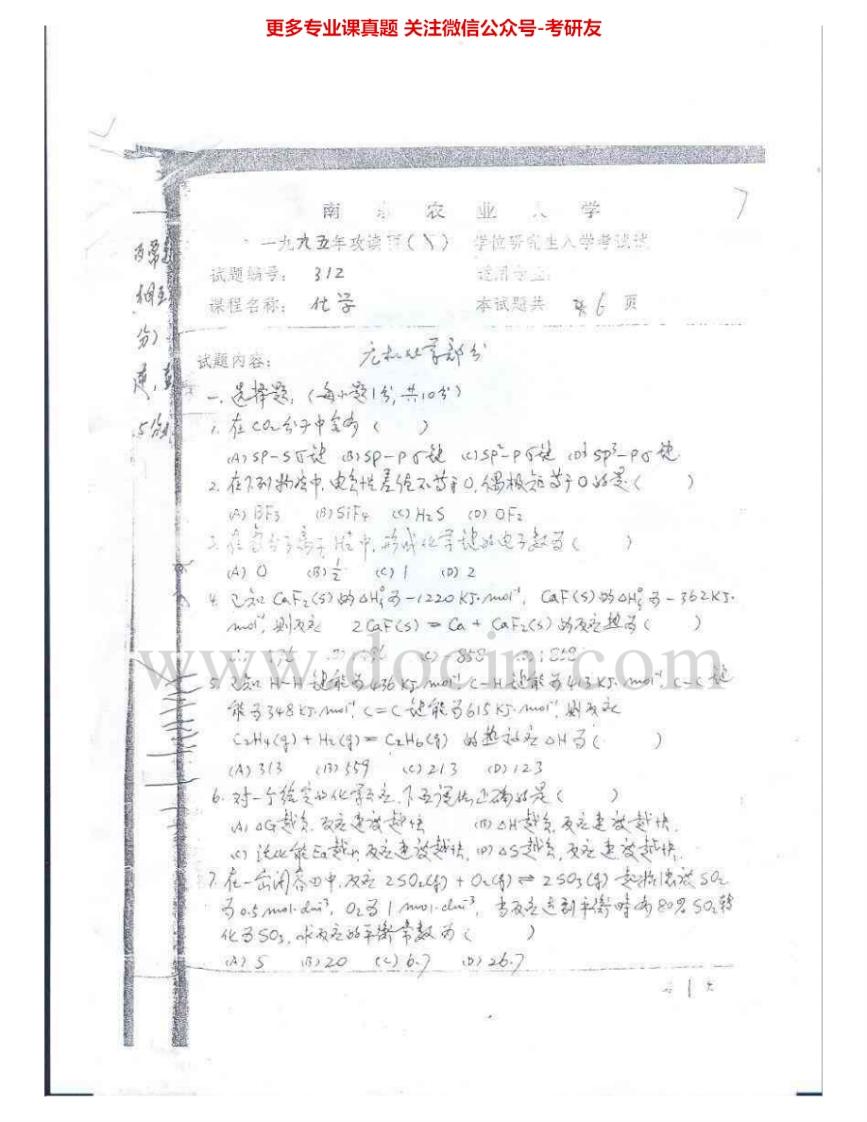 更多专业课真题 关注微信公众号-考研友
7
南 农 业 学
一九九五年攻读 学位研究生入学考试试
试题编号： 312
课程名称： 化学 本试题共 6 页
试题内容： 无机化学部分
一、选择题：（每小题1分，共10分）
1. 在CO₂分子中含有（ ）
(A) SP-Sσ键 (B) SP-Pσ键 (C) SP²-Pσ键 (D) SP³-Pσ键
2. 在下列物质中，电负性差值不等于0，偶极矩等于0的是（ ）
(A) BF₃ (B) SiF₄ (C) H₂S (D) OF₂
3. 在氢分子离子H₂⁺中，形成化学键的电子数为（ ）
(A) 0 (B) ½ (C) 1 (D) 2
4. 已知CaF₂(s)的ΔH°f为-1220KJ·mol⁻¹，CaF(s)的ΔH°f为-362KJ·
mol⁻¹，则反应 2CaF(s) = Ca + CaF₂(s) 的反应热为（ ）
www.docin.com
5. 已知H-H键能为436KJ·mol⁻¹，C-H键能为413KJ·mol⁻¹，C-C键
能为348KJ·mol⁻¹，C=C键能为615KJ·mol⁻¹，则反应
C₂H₄(g) + H₂(g) = C₂H₆(g) 的热效应ΔH为（ ）
(A) 313 (B) 559 (C) 213 (D) 123
6. 对一个给定的化学反应，下面说法正确的是（ ）
(A) ΔG越负，反应速度越快 (B) ΔH越负，反应速度越快
(C) 活化能Ea越小，反应速度越快，(D) ΔS越负，反应速度越快
7. 在一密闭容器中，反应 2SO₂(g) + O₂(g) ⇌ 2SO₃(g) 起始浓度SO₂
为0.5mol·dm⁻³，O₂为1mol·dm⁻³，当反应达到平衡时有80%SO₂转
化为SO₃，求反应的平衡常数为（ ）
(A) 5 (B) 20 (C) 6.7 (D) 26.7
1